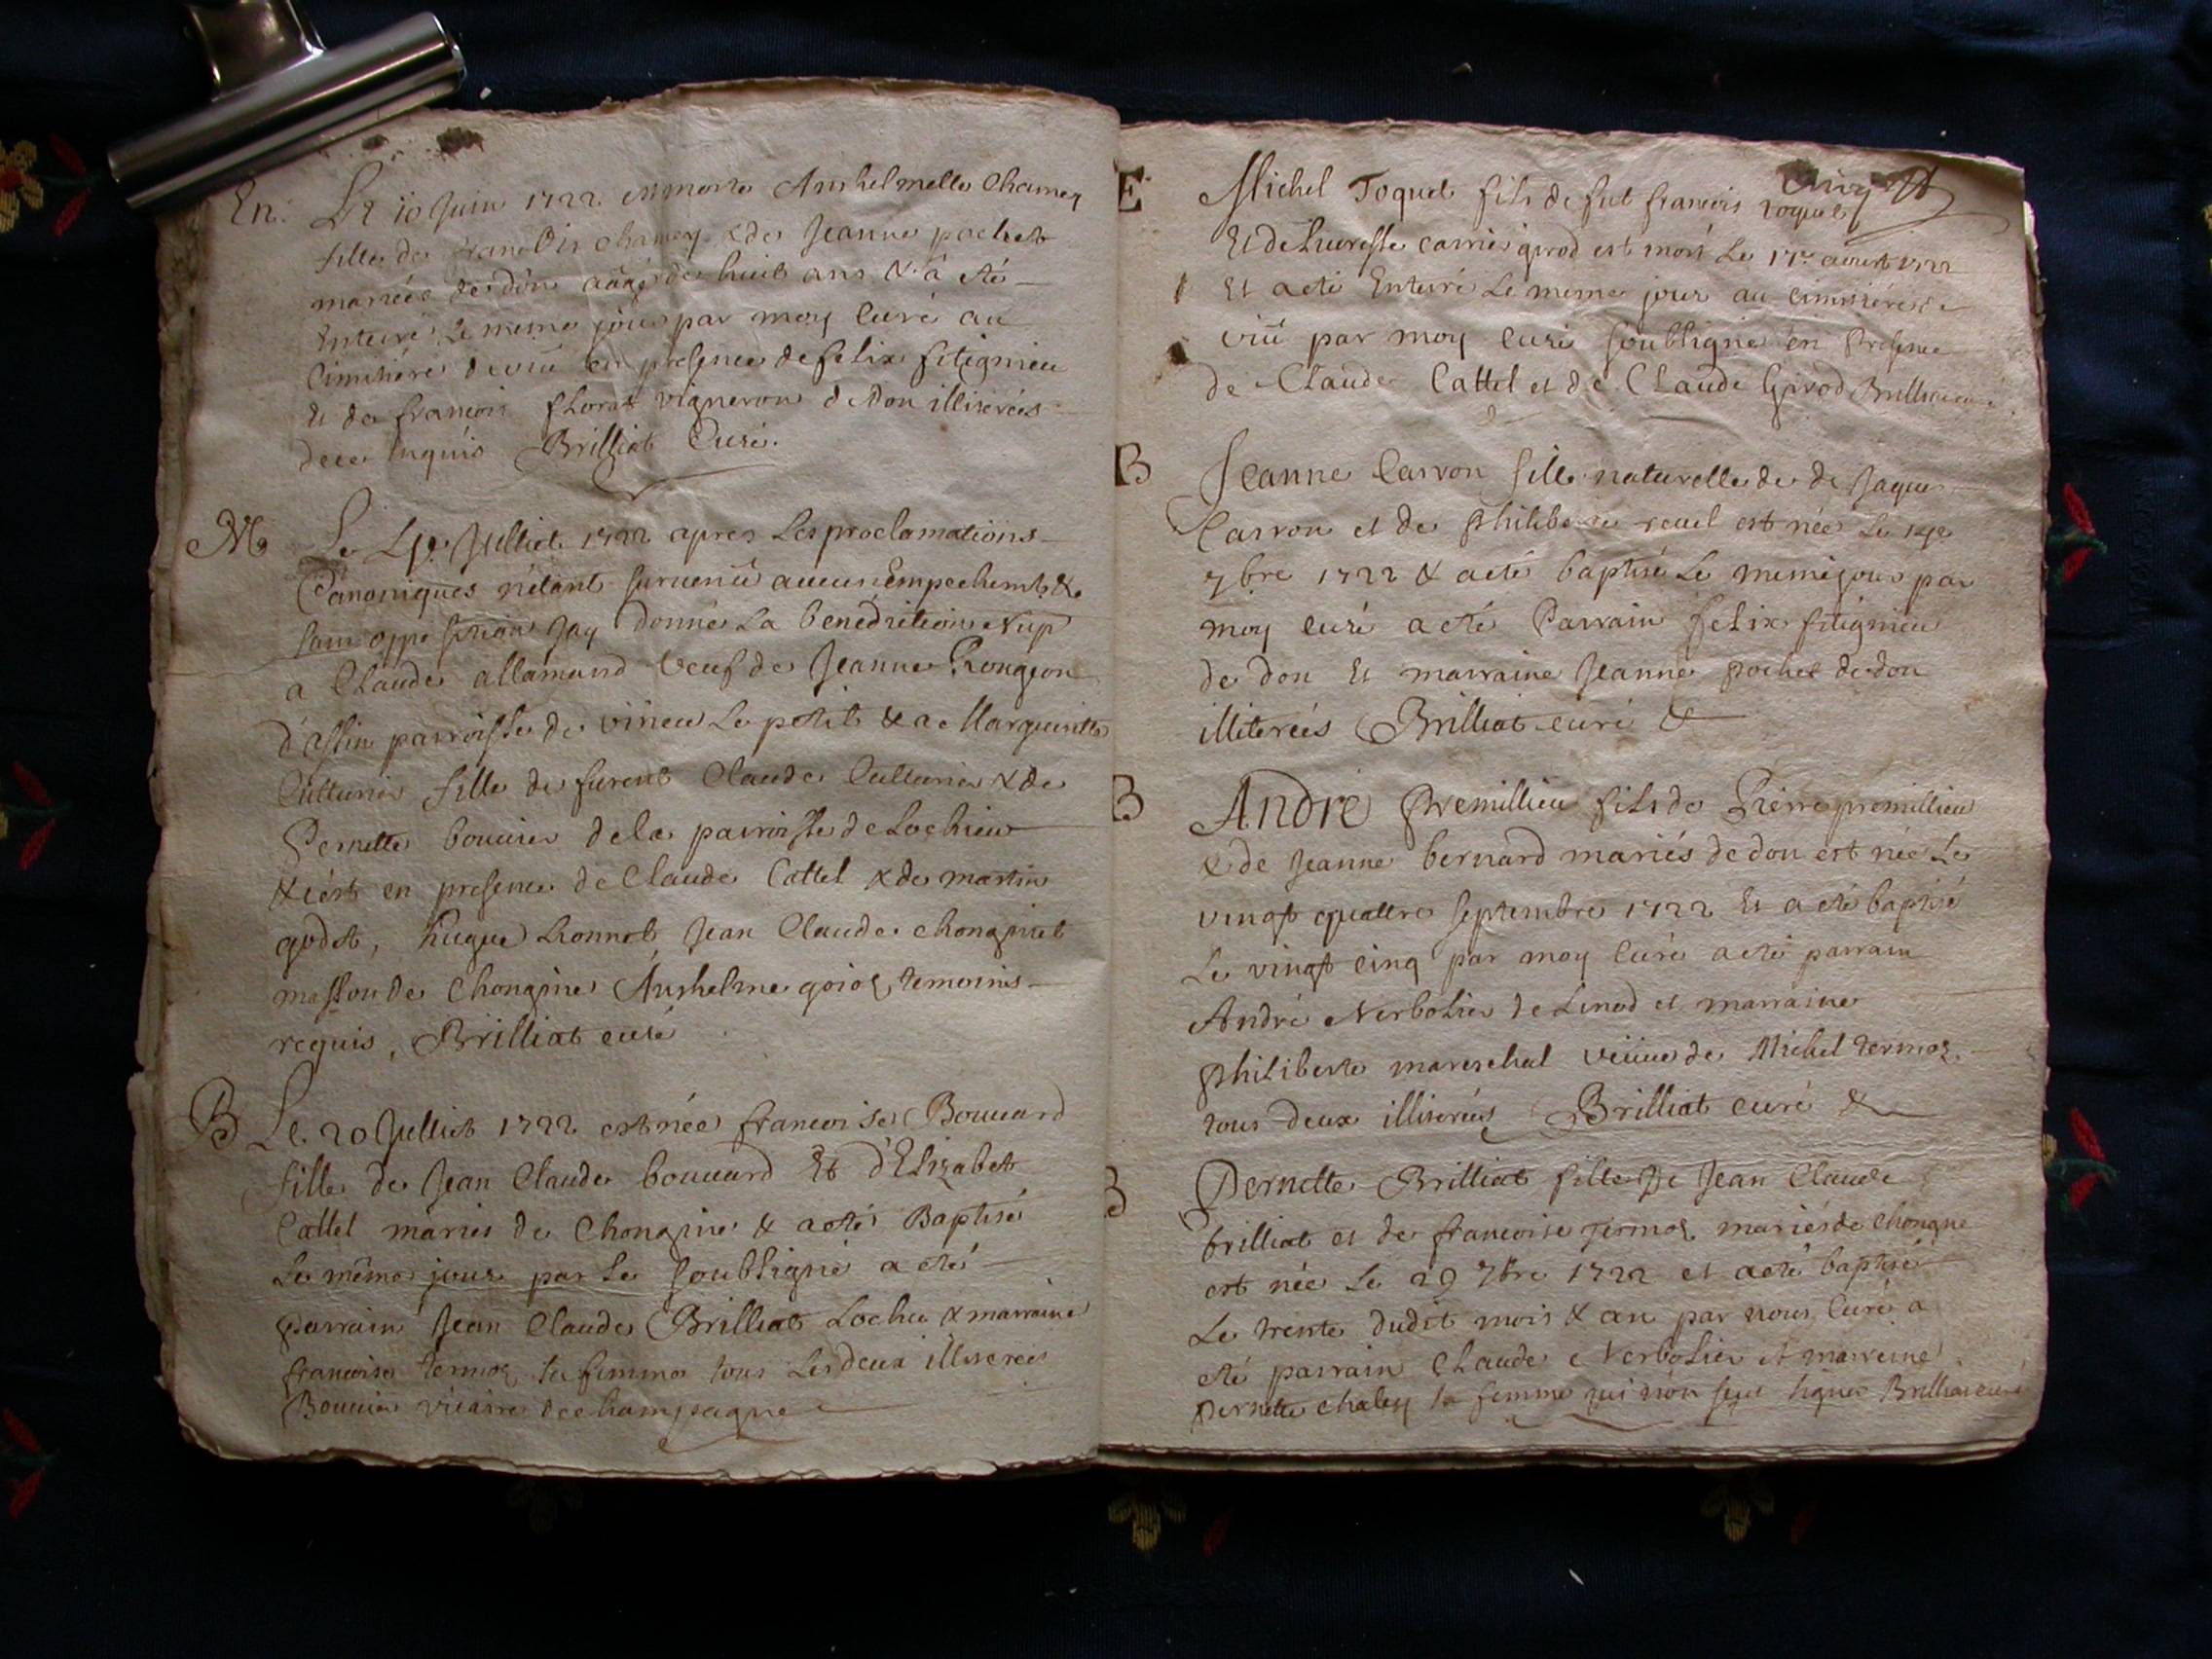 En. Le 10 Juin 1722 est morte Anthelmette Chamey
fille de francois chamey & de Jeanne pochet
mariés de don aagé de huit ans & a eté
Enterré le meme jour par moy curé au
Cimitiére de viû en presence de felix fitignieu
Et de francois florat vigneron de don illiterées
de ce Enquis Brilliat Curé.
M. Le Juilliet 1722 apres Les proclamations
Canoniques n'etant survenû aucun Empechemt. &
sans opposition Jay donné La benediction Nup
a Claude allamand veuf de Jeanne Rongeon
d'assin parroisse de vineu Le petit & a Margueritte
Cutturier fille de furent Claude Cutturier & de
Pernette bouvier de la parroisse de Lochieu
& c'est en presence de Claude Cattel & de martin
godet, hugue Lionnet Jean Claude chongniet
masson de Chongne Anthelme goioz temoins
requis, Brilliat curé
B Le 20 Juilliet 1722 est née francoise Bouvard
fille de Jean Claude bouvard Et d'Elizabet
Cattel mariés de Chongne & a eté Baptisé
Le même jour par Le soubsigné a eté
parrain Jean Claude Brilliat Lochu & marraine
francoise termoz sa femme tous Les deux illiterées
Bouvier vicaire de champagne
E Michel Toquet fils de fut francois toquet
Et de carrier girod est mort Le 17e aoust 1722
Et a eté Enterré Le meme jour au cimitiére de
viû par moy curé soubsigné en presence
de Claude Cattel et de Claude Girod Brilliat curé
B Jeanne Carron fille naturelle de de Jaque
Carron et de philiberte revel est née Le 14e
7bre 1722 & a eté baptisé Le meme jour par
moy curé a eté Parrain felix fitignieu
de don Et marraine Jeanne pochet de don
illiterées Brilliat curé &
B André premillieu fils de Pierre premillieu
& de Jeanne bernard mariés de don est née Le
vingt quattre septembre 1722 Et a eté baptisé
Le vingt cinq par moy curé a eté parrain
André Nerbolier de Linod et marraine
philiberte mareschal veuve de Michel termoz
tous deux illiterées Brilliat curé &
B Pernette Brilliat fille de Jean Claude
brilliat et de francoise termoz mariés de Chongne
est née Le 29 7bre 1722 et a eté baptisé
Le trente dudit mois & an par nous Curé a
eté parrain Claude Nerbolier et marreine
Pernette chaley sa femme qui n'on sçu signer Brilliat curé